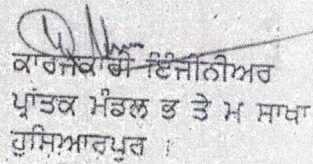 ਕਾਰਜਕਾਰੀ ਇੰਜੀਨੀਅਰ
ਪ੍ਰਾਂਤਕ ਮੰਡਲ ਭ ਤੇ ਮ ਸਾਖਾ
ਹੁਸਿਆਰਪੁਰ ।